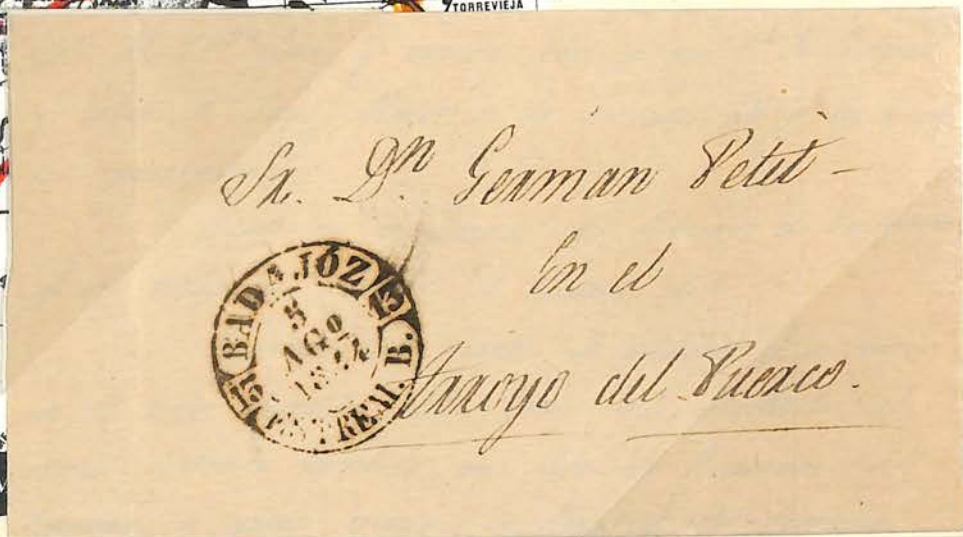 TORREVIEJA
Sr. Dn German Petit -
En el
Arroyo del Puerco.
BADAJÓZ
5
AGO
ESTREM. B.